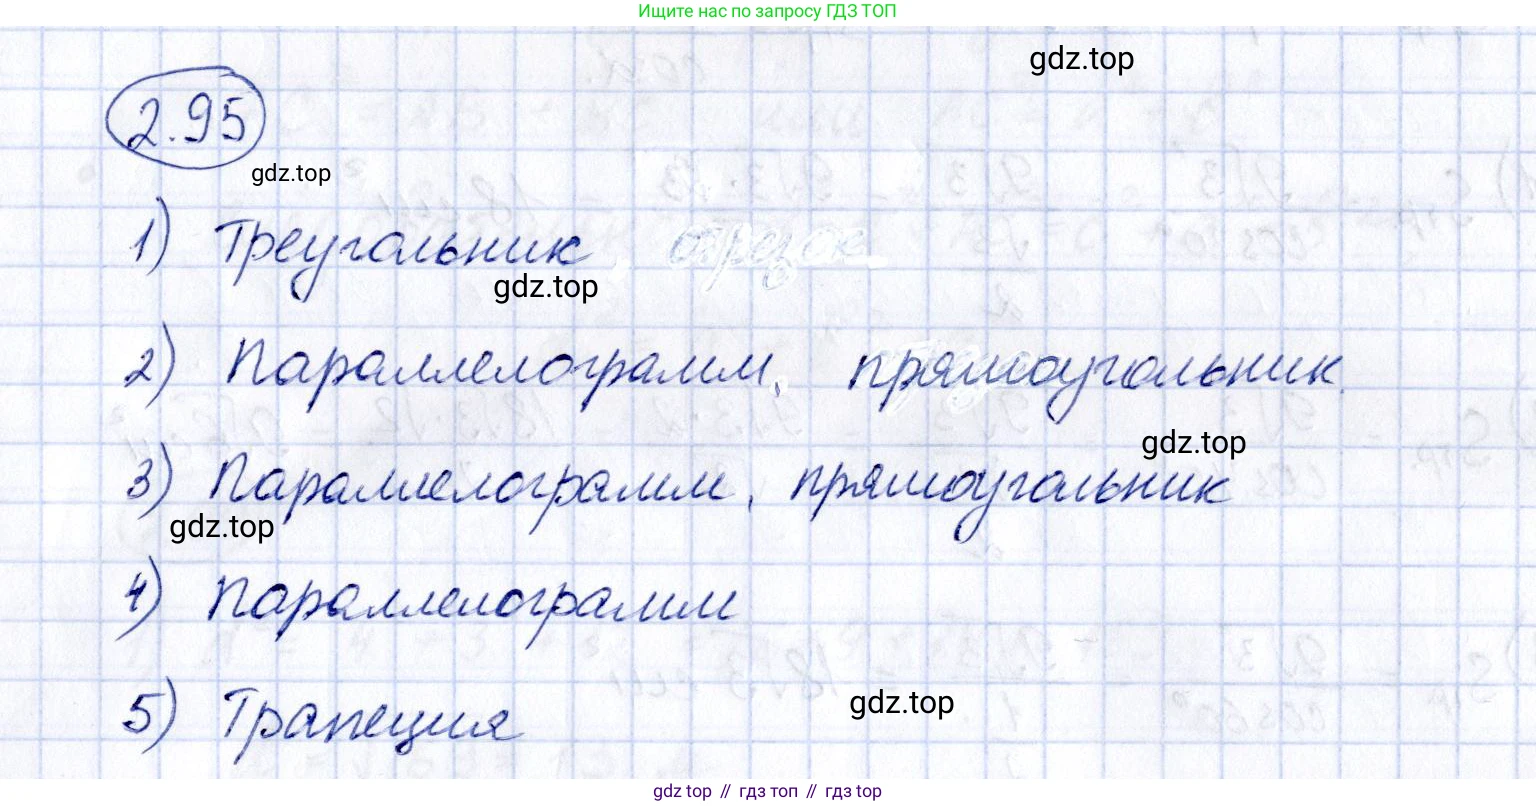 Ищите нас по запросу ГДЗ ТОП
gdz.top
2.95
gdz.top
1) Треугольник, отрезок
gdz.top
2) Параллелограмм, прямоугольник.
gdz.top
3) Параллелограмм, прямоугольник
gdz.top
4) Параллелограмм
5) Трапеция
gdz.top
gdz top // гдз топ // гдз top